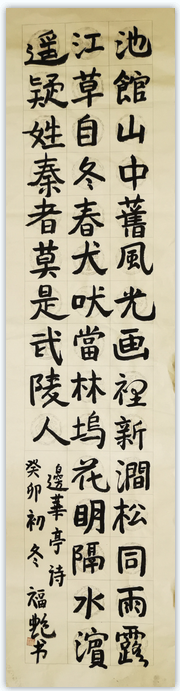 池館山中舊風光画裡新澗松同雨露
江草自冬春犬吠當林塢花明隔水濱
遥疑姓秦者莫是武陵人
邊華亭詩
癸卯初冬 福书